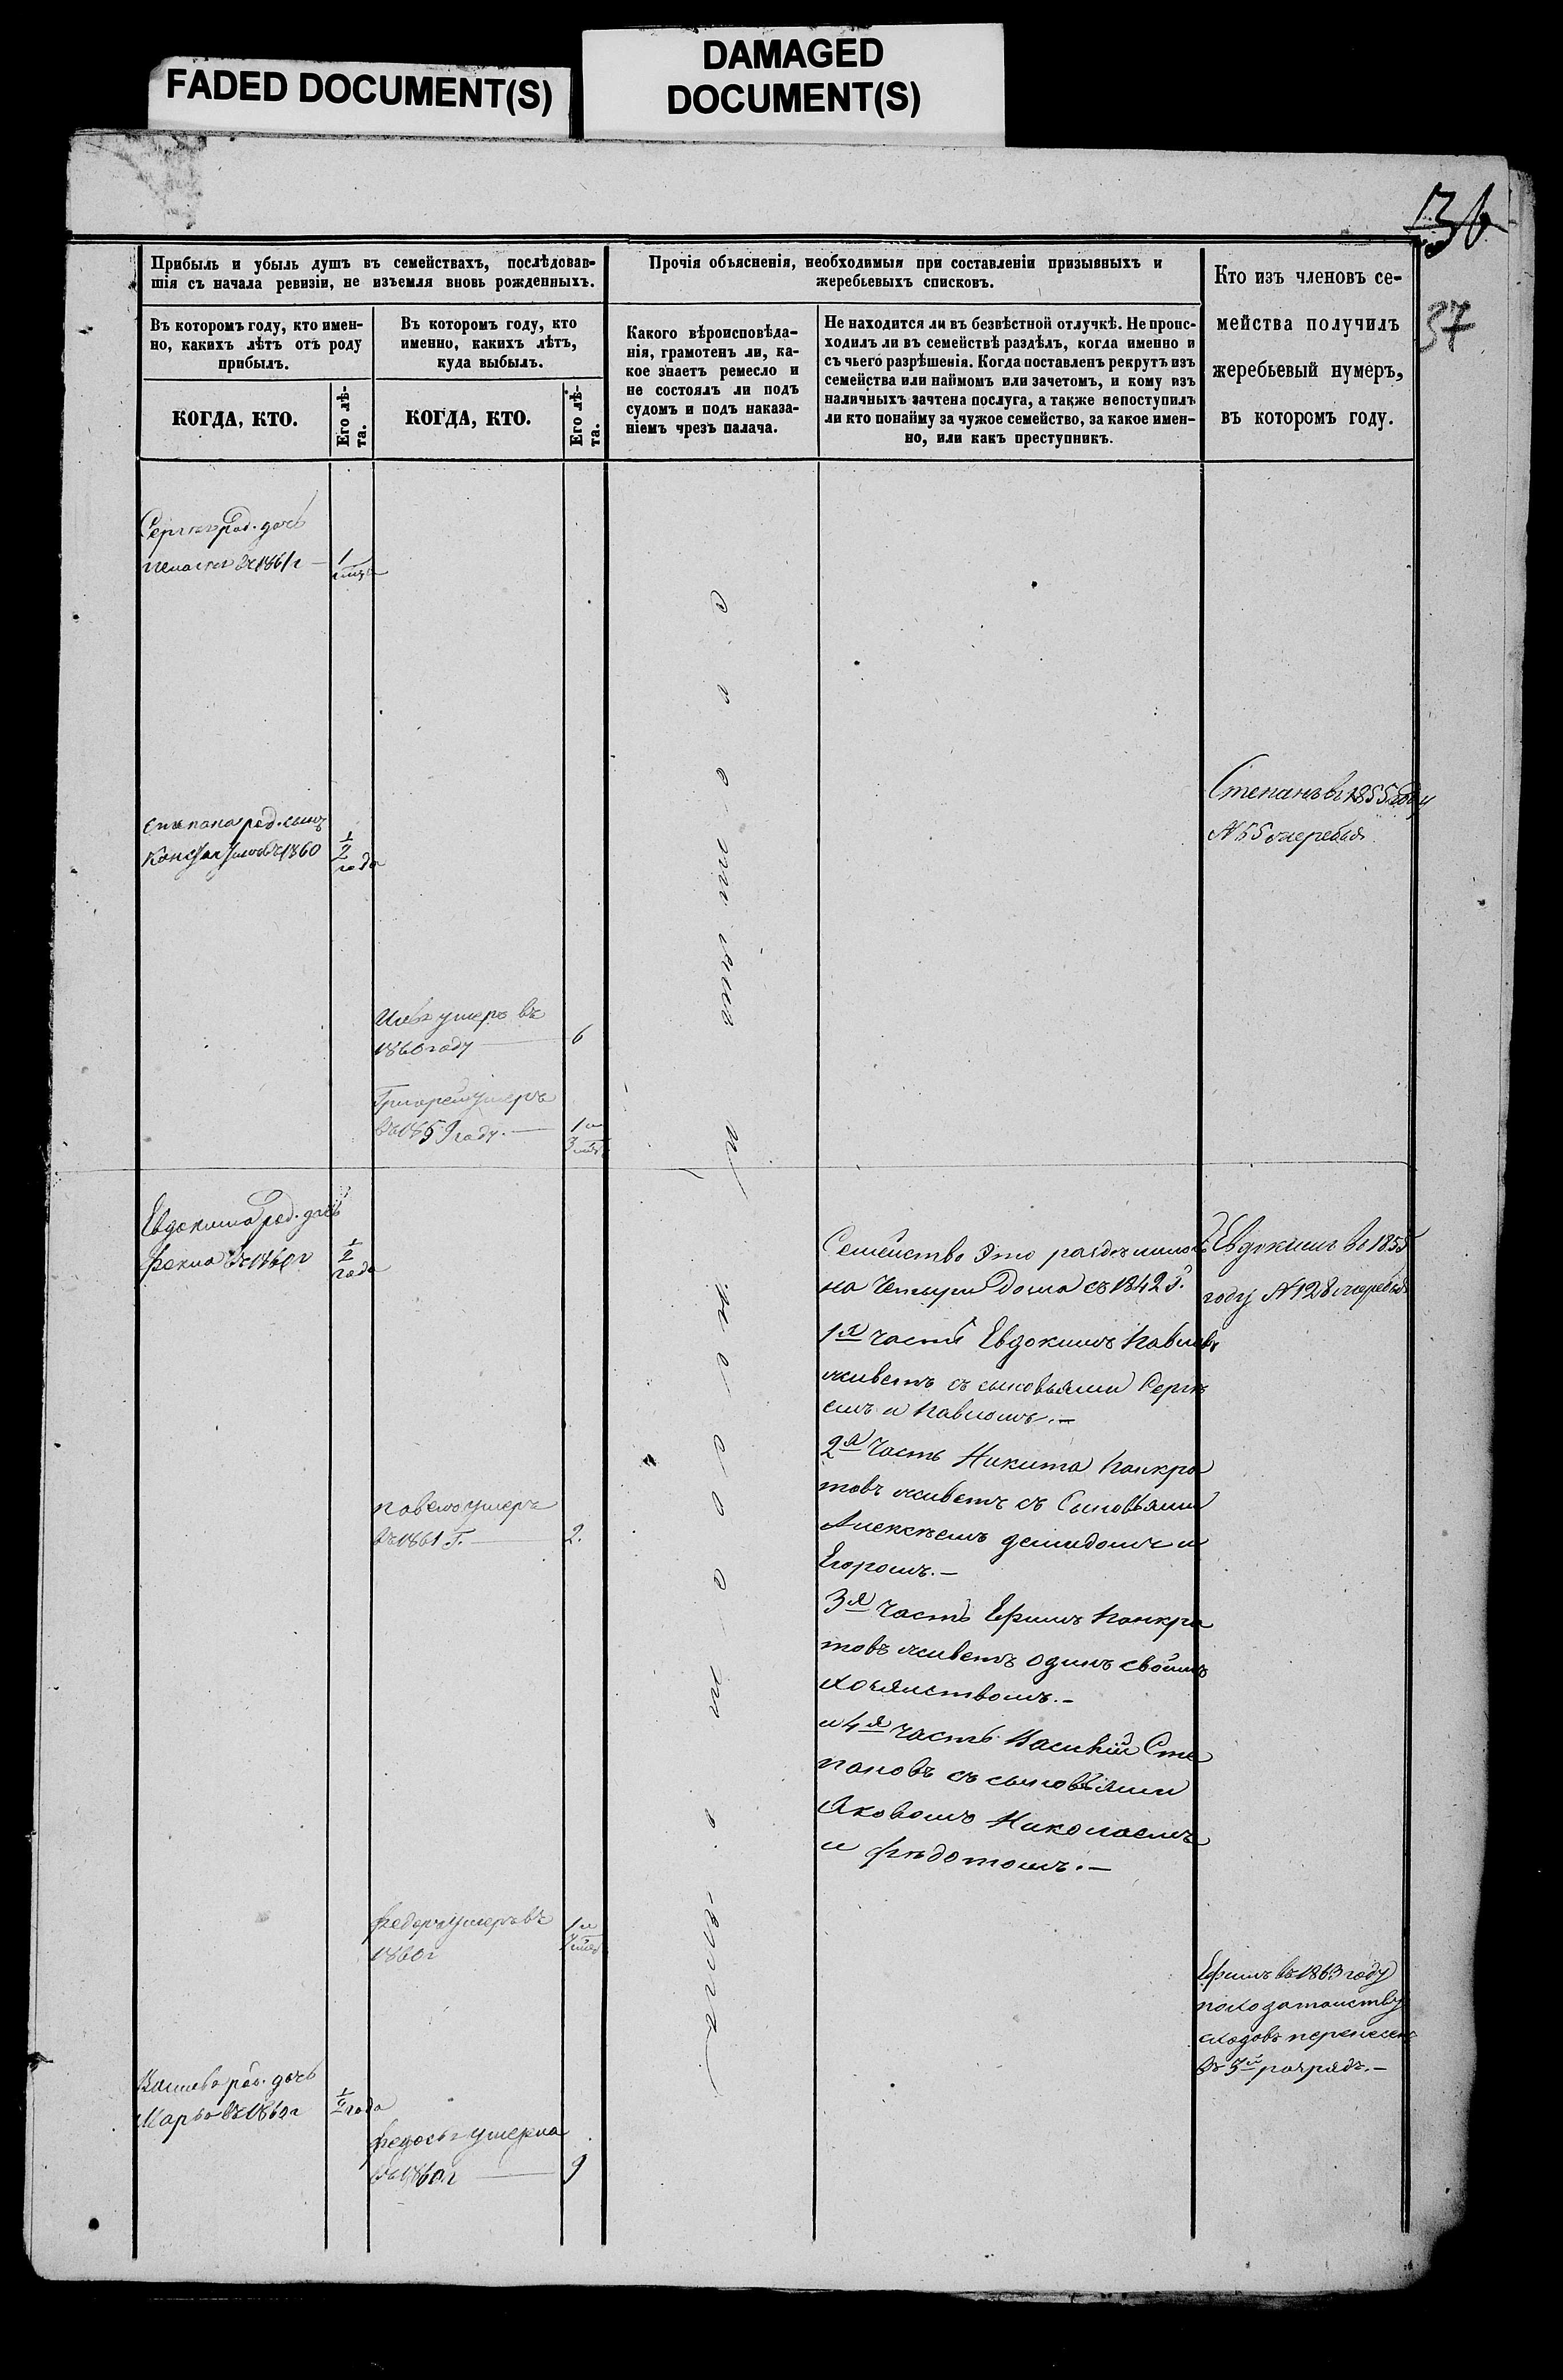 FADED DOCUMENT(S)
DAMAGED
DOCUMENT(S)
36
37
Прибыль и убыль душъ въ семействахъ, послѣдовав-
шія съ начала ревизіи, не изъемля вновь рожденныхъ.
Въ которомъ году, кто имен-
но, какихъ лѣтъ отъ роду
прибылъ.
КОГДА, КТО.
Его лѣ-
та.
Въ которомъ году, кто
именно, какихъ лѣтъ,
куда выбылъ.
КОГДА, КТО.
Его лѣ-
та.
Прочія объясненія, необходимыя при составленіи призывныхъ и
жеребьевыхъ списковъ.
Какого вѣроисповѣда-
нія, грамотенъ ли, ка-
кое знаетъ ремесло и
не состоялъ ли подъ
судомъ и подъ наказа-
ніемъ чрезъ палача.
Не находится ли въ безвѣстной отлучкѣ. Не проис-
ходилъ ли въ семействѣ раздѣлъ, когда именно и
съ чьего разрѣшенія. Когда поставленъ рекрутъ изъ
семейства или наймомъ или зачетомъ, и кому изъ
наличныхъ зачтена послуга, а также непоступилъ
ли кто понайму за чужое семейство, за какое имен-
но, или какъ преступникъ.
Кто изъ членовъ се-
мейства получилъ
жеребьевый нумеръ,
въ которомъ году.
род. дочь
въ 1861 г
1
Степанъ въ 1855 году
№ 55 жеребья
степана род. сынъ
въ 1860
1/2
года
умеръ въ
1860 году
6
Григорей умеръ
въ 1859 году.
1 и
Евдокима род. дочь
фекла въ 1860 г
1/2
года
Семейство это раздѣлилось
на четыри дома съ 1842 г.
1я часть Евдокимъ Павловъ
живетъ съ сыновьями Сергѣ
емъ и Павломъ.—
2я часть Никита Панкра
товъ живетъ съ Сыновьями
Алексѣемъ демидомъ и
Егоромъ.—
3я часть Ефимъ Панкра
товъ живетъ одинъ своимъ
хозяиствомъ.—
и 4я часть Василій Сте
пановъ съ сыновьями
Яковомъ Николаемъ
и фѣдотомъ.—
Евдокимъ въ 1855
году № 128 жеребья
павелъ умеръ
въ 1861 г.
2.
федоръ умеръ въ
1860 г
1 и
Ефимъ въ 1863 году
по ходатаиству
сходовъ перенесенъ
въ 3й разрядъ.—
род. дочь
Марья въ 1860 г
1/2 года
умерла
въ 1860 г
9